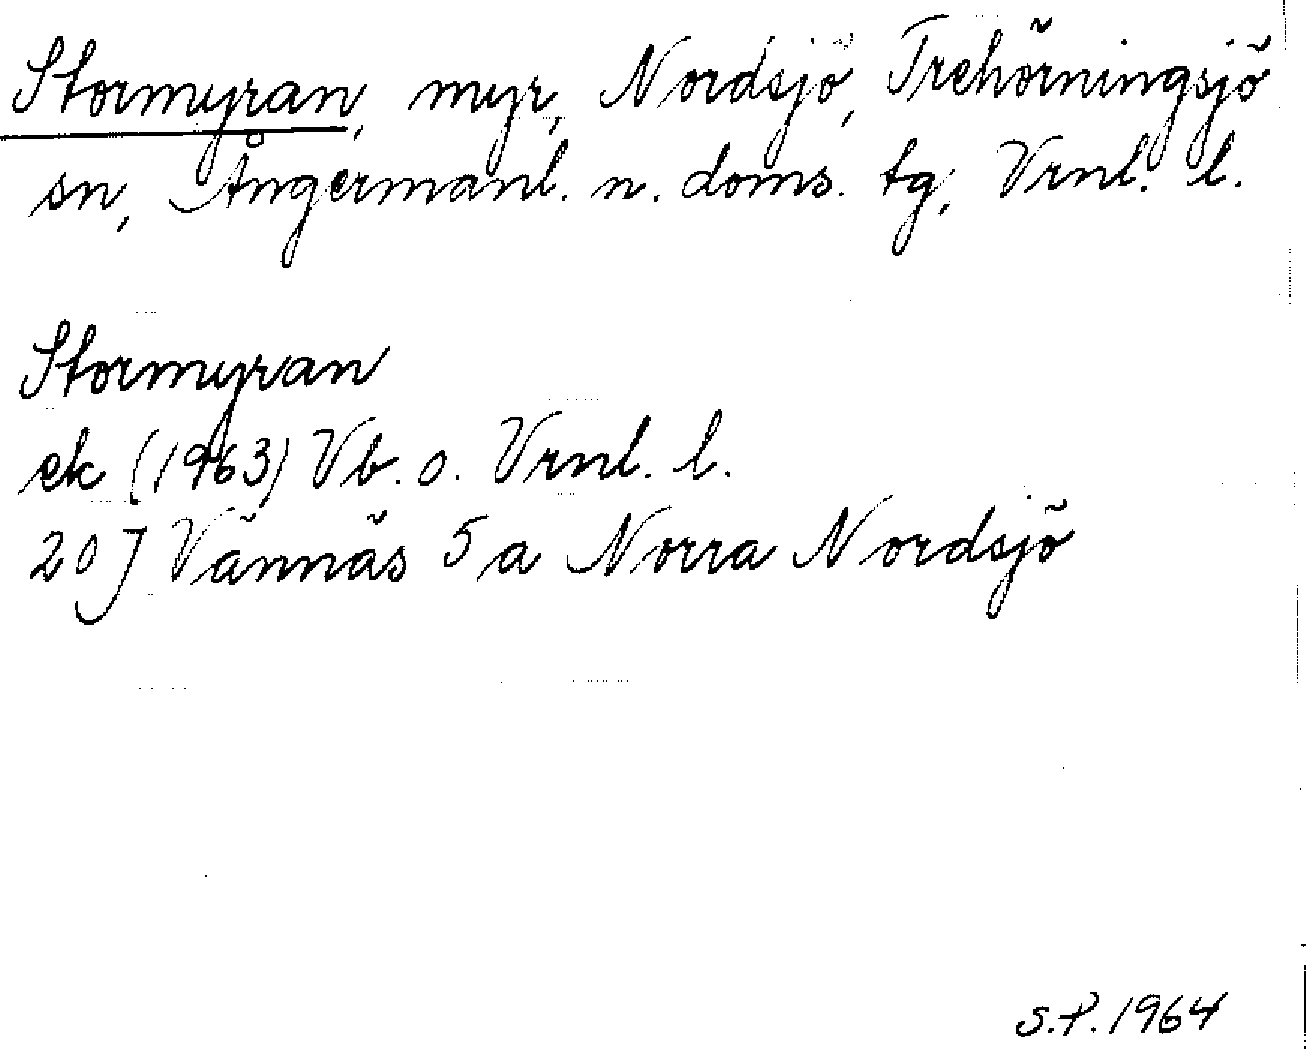 Stormyran, myr, Nordsjö, Trehörningsjö
sn, Ångermanl. n. doms. tg, Vrnl. l.
Stormyran
ek (1963) Vb. o. Vrnl. l.
20 J Vännäs 5 a Norra Nordsjö
S.P. 1964